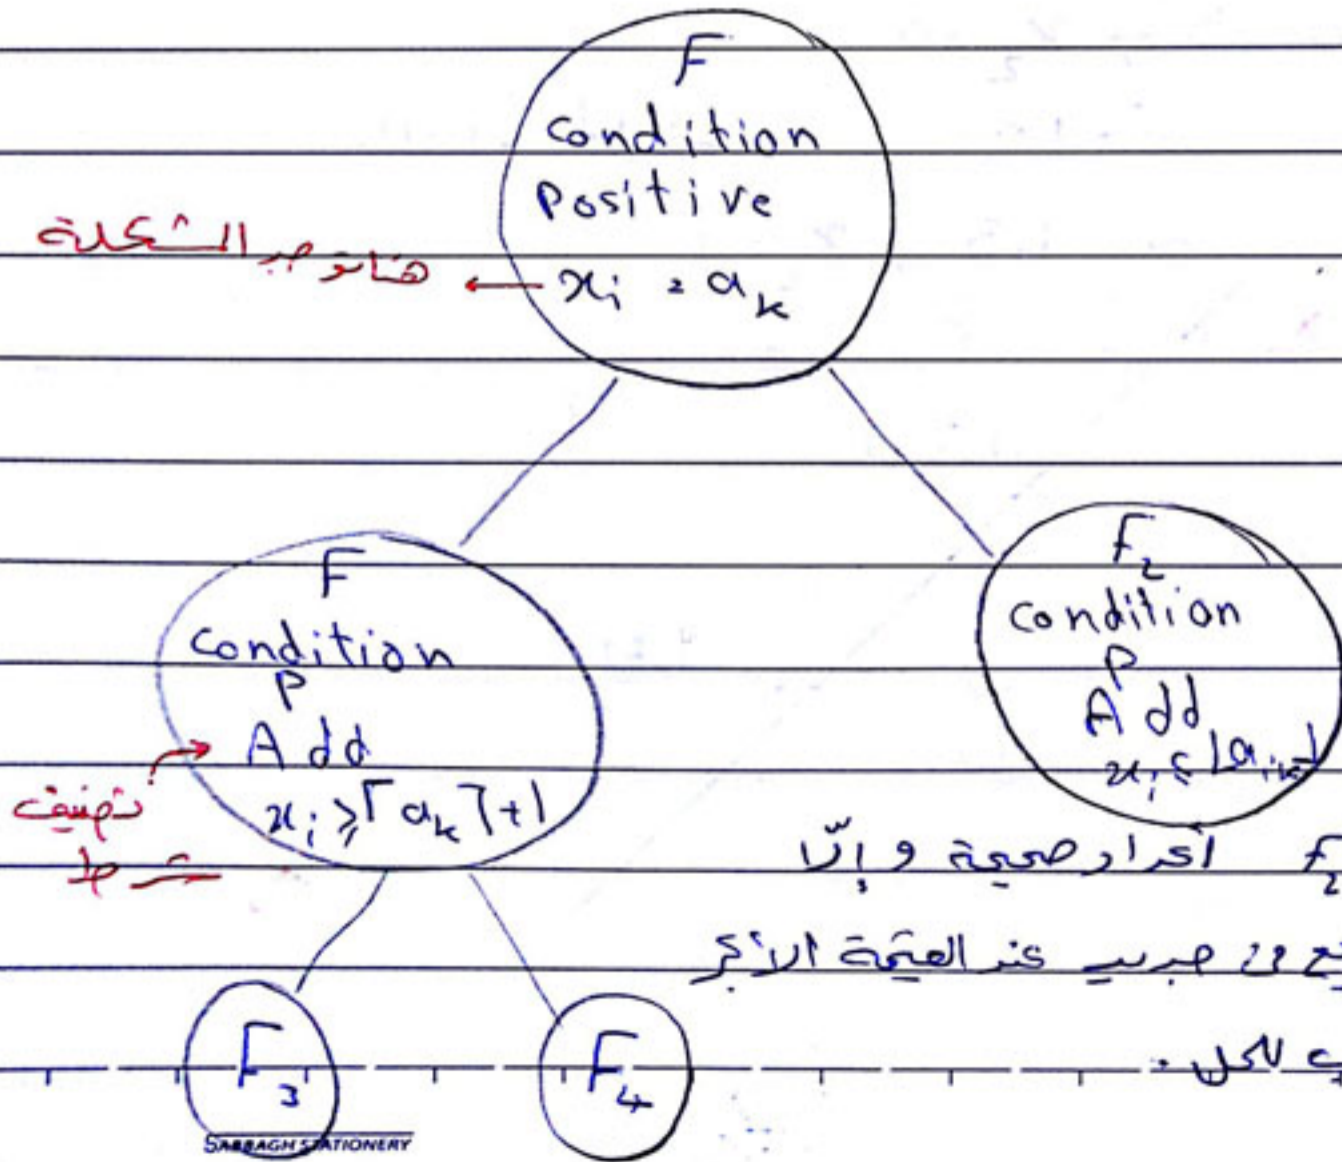 F
condition
Positive
xᵢ = aₖ
هنا توجد المشكلة
F
condition
P
Add
xᵢ ≥ ⌈aₖ⌉+1
نضيف
شرط
F₂
condition
P
Add
xᵢ ≤
F₂ أعداد صحيحة وإلّا
جديد عند القيمة الأكبر
للحل.
F₃
F₄
SABBAGH STATIONERY